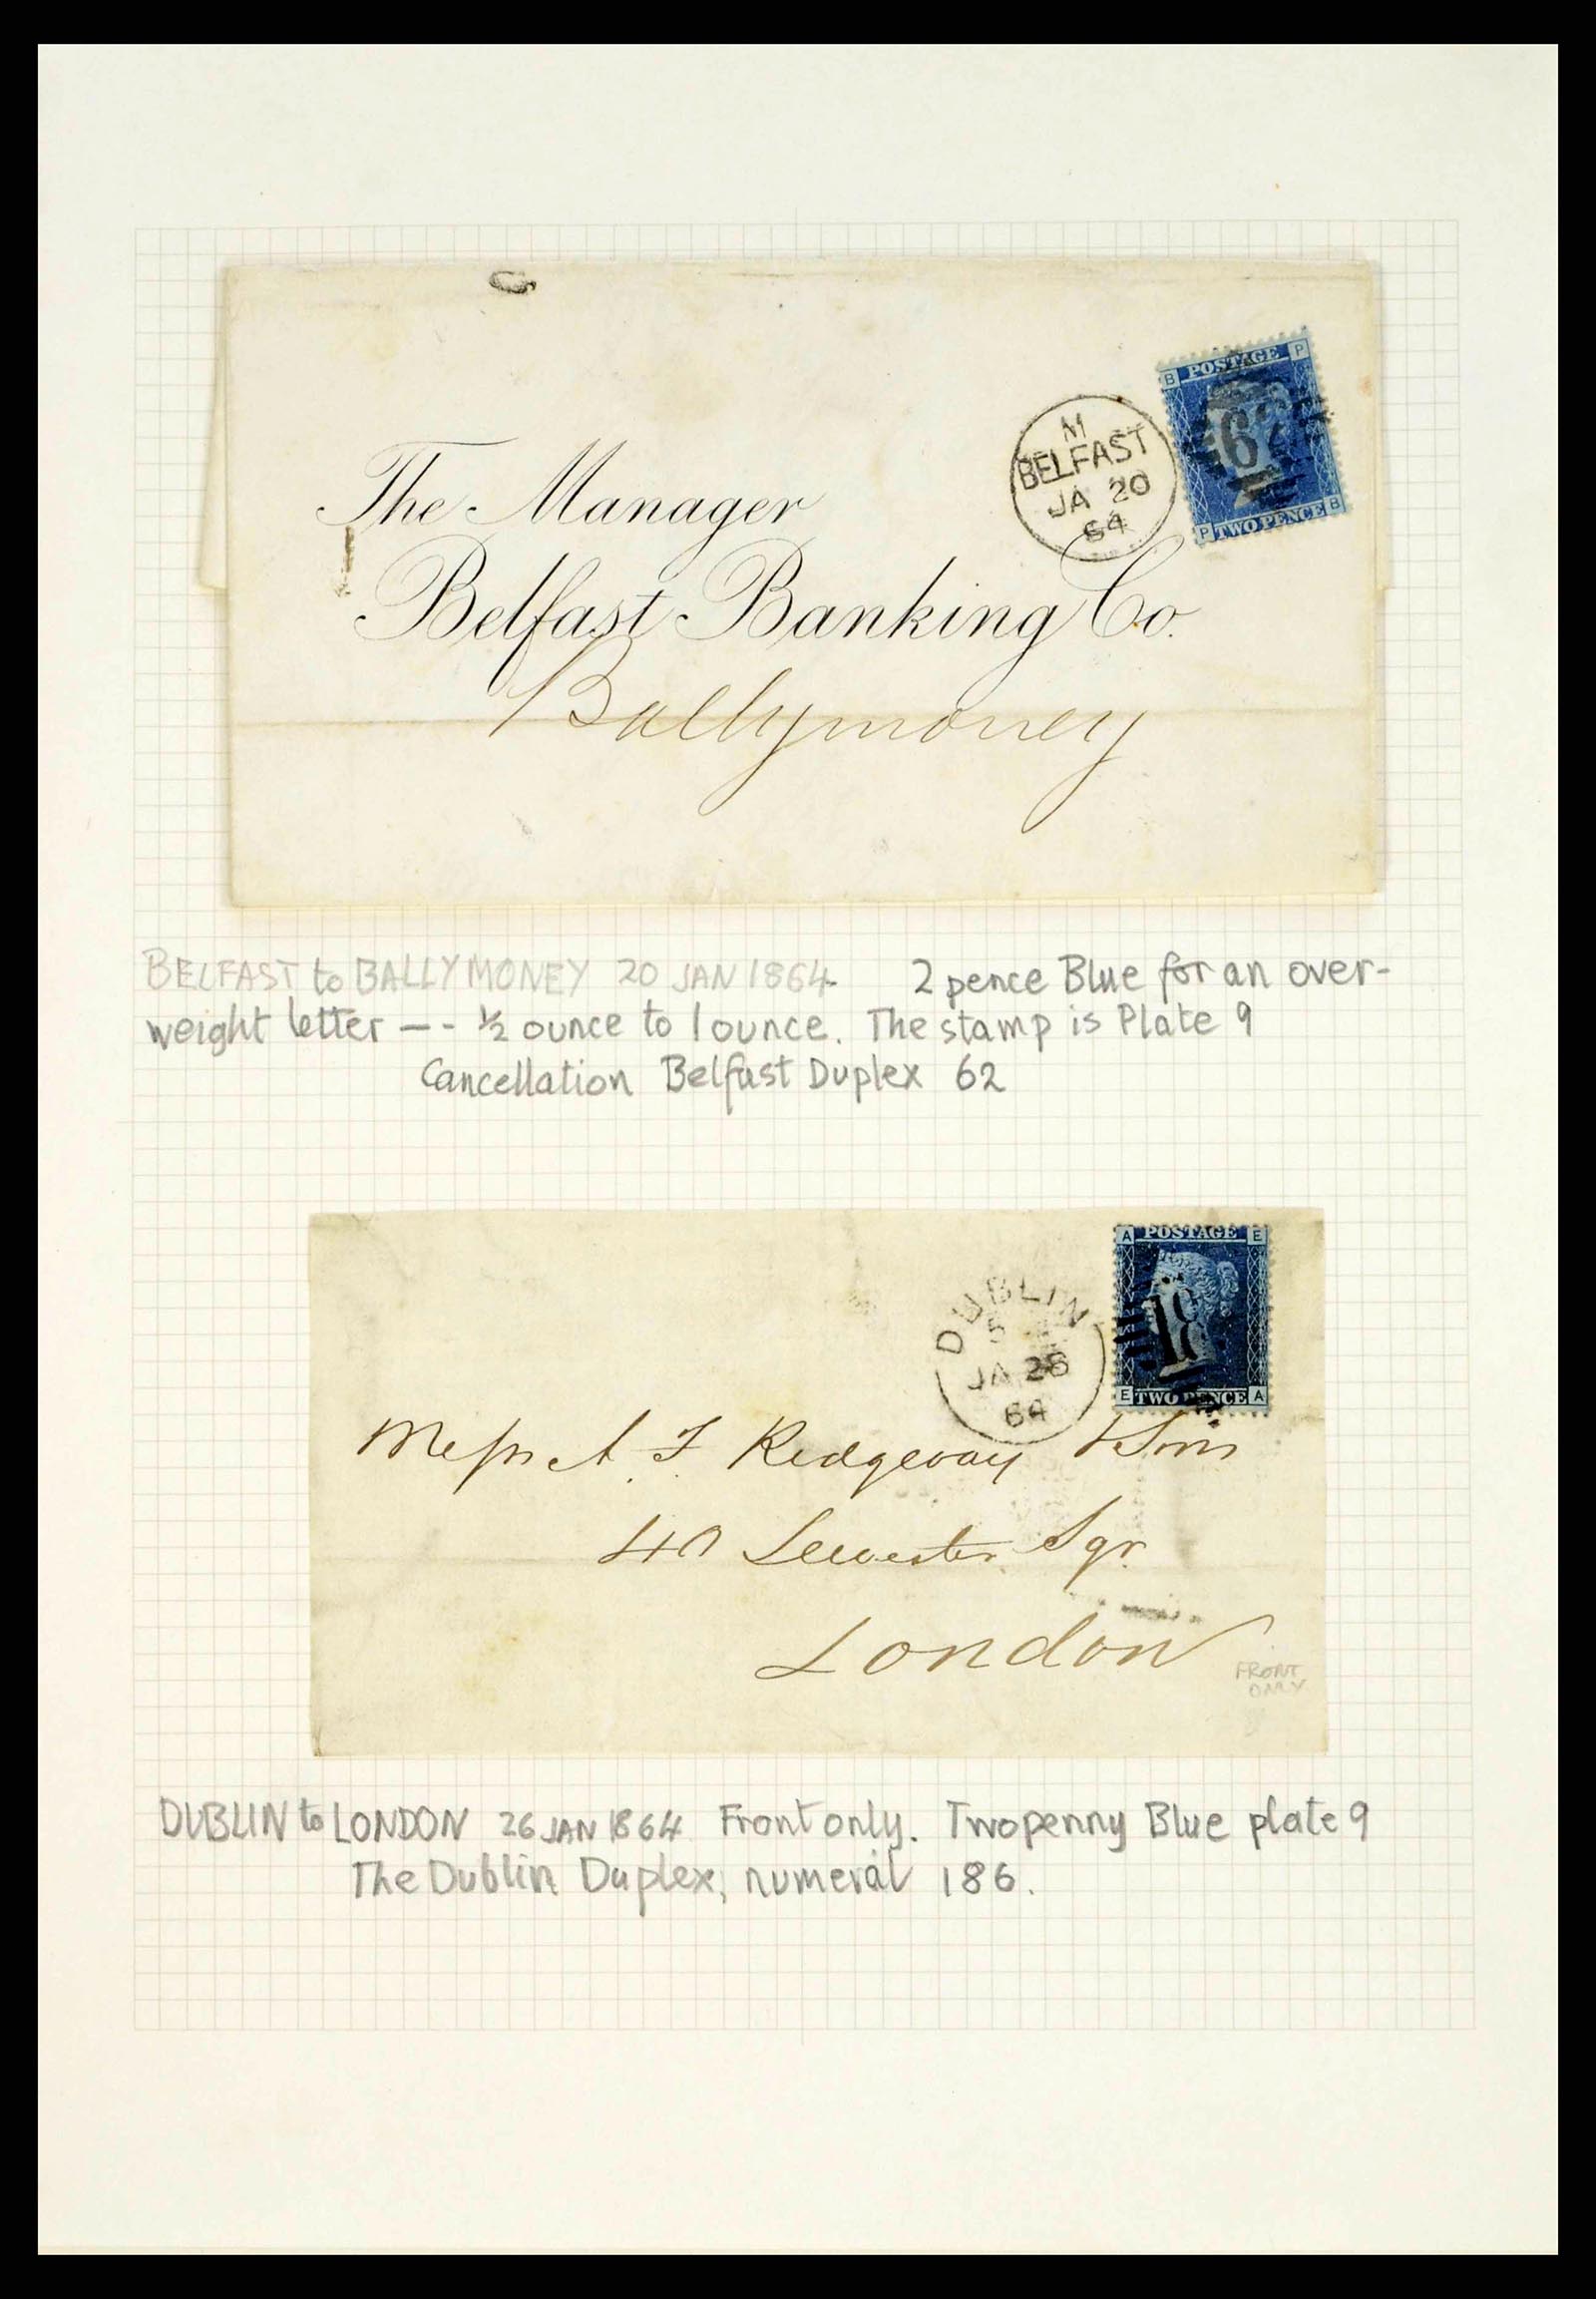 B POSTAGE P
62
P TWO PENCE B
M
BELFAST
JA 20
64
The Manager
Belfast Banking Co.
Ballymoney
BELFAST to BALLYMONEY 20 JAN 1864 2 pence Blue for an over-
weight letter — - ½ ounce to 1 ounce. The stamp is Plate 9
Cancellation Belfast Duplex 62
A POSTAGE E
18
E TWO PENCE A
DUBLIN
5
JA 26
64
Messrs A. F. Ridgeway & Sons
40 Leicester Sqr.
London
FRONT
ONLY
DUBLIN to LONDON 26 JAN 1864 Front only. Twopenny Blue plate 9
The Dublin Duplex, numeral 186.